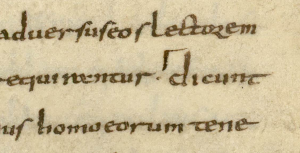 aduersus eos lectorem
requirantur. dicunt
ius homo eorum tene